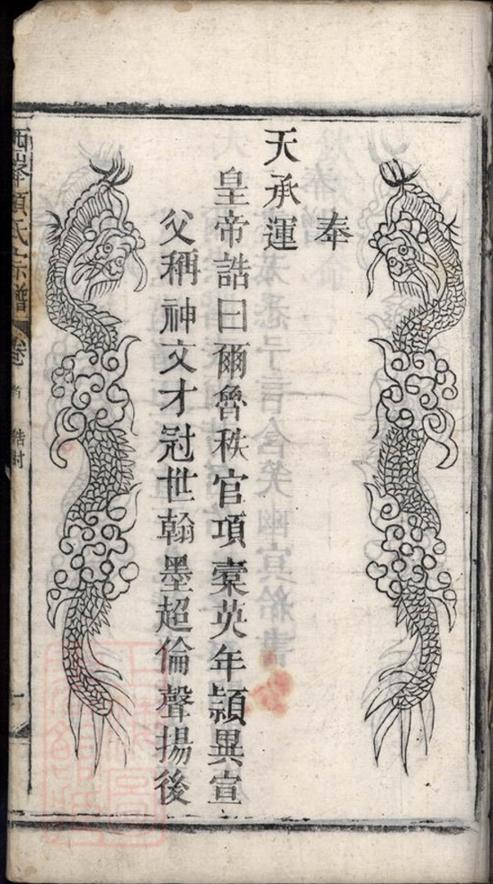 奉
天承運
皇帝誥曰爾魯秩官項橐英年穎異宣
父稱神文才冠世翰墨超倫聲揚後
西峯項氏宗譜
卷首
誥封
一